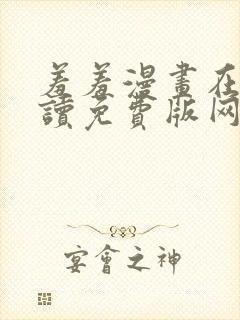 羞羞漫畫在
讀免費版网
宴會之神